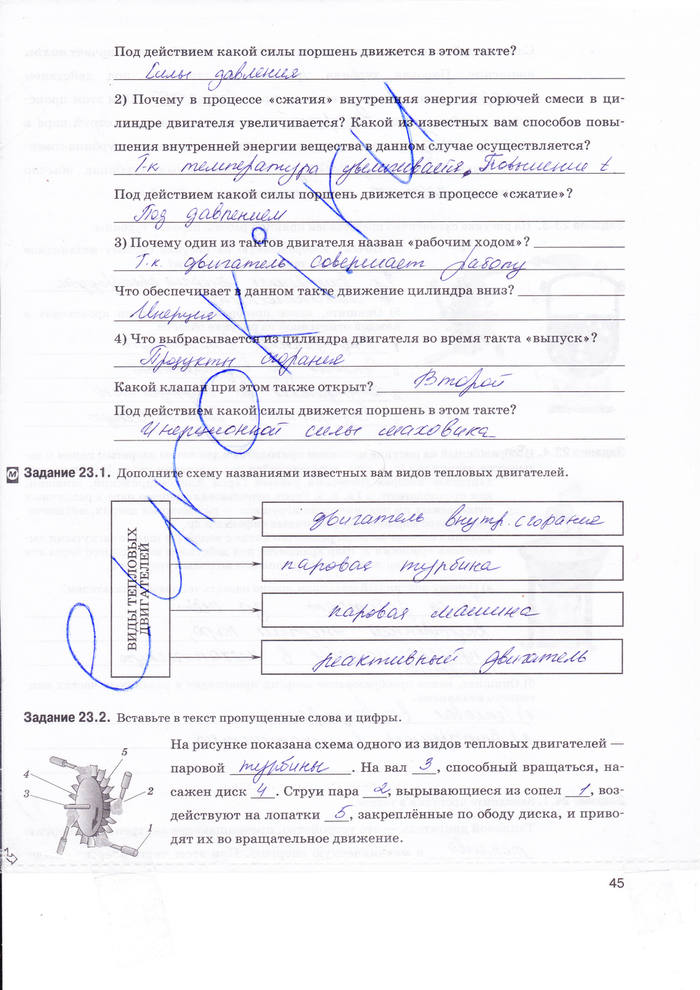 Под действием какой силы поршень движется в этом такте?
Силы давления
2) Почему в процессе «сжатия» внутренняя энергия горючей смеси в ци-
линдре двигателя увеличивается? Какой из известных вам способов повы-
шения внутренней энергии вещества в данном случае осуществляется?
Т.к температура увеличивается. Повышение t
Под действием какой силы поршень движется в процессе «сжатие»?
Под давлением
3) Почему один из тактов двигателя назван «рабочим ходом»?
Т.к. двигатель совершает работу
Что обеспечивает в данном такте движение цилиндра вниз?
Инерция
4) Что выбрасывается из цилиндра двигателя во время такта «выпуск»?
Продукты сгорания
Какой клапан при этом также открыт? Второй
Под действием какой силы движется поршень в этом такте?
Инерционной силы маховика
Задание 23.1. Дополните схему названиями известных вам видов тепловых двигателей.
ВИДЫ ТЕПЛОВЫХ
ДВИГАТЕЛЕЙ
двигатель внутр. сгорание
паровая турбина
паровая машина
реактивный двигатель
Задание 23.2. Вставьте в текст пропущенные слова и цифры.
На рисунке показана схема одного из видов тепловых двигателей —
паровой турбины. На вал 3, способный вращаться, на-
сажен диск 4. Струи пара 2, вырывающиеся из сопел 1, воз-
действуют на лопатки 5, закреплённые по ободу диска, и приво-
дят их во вращательное движение.
5
4
3
2
1
45